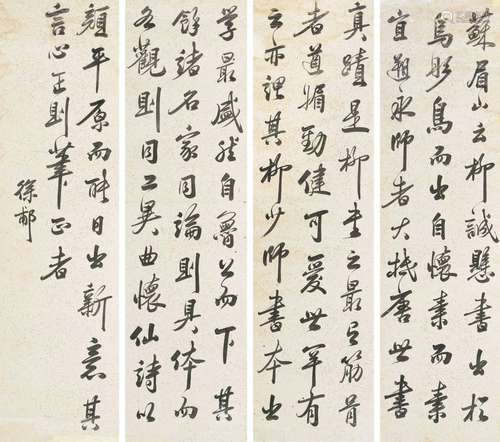 蘇眉山云柳誠懸書出於
烏彤烏而出自懷素而素
宜遡永師者大抵唐世書
真蹟是柳書之最筋骨
者遒媚勁健可愛世罕有
云亦謂其柳少師書本出
學最盛然自魯公而下其
餘諸名家同論則具体而
各觀則同工異曲懷仙詩以
顏平原而能自出新意其
言心正則筆正者
徐郙